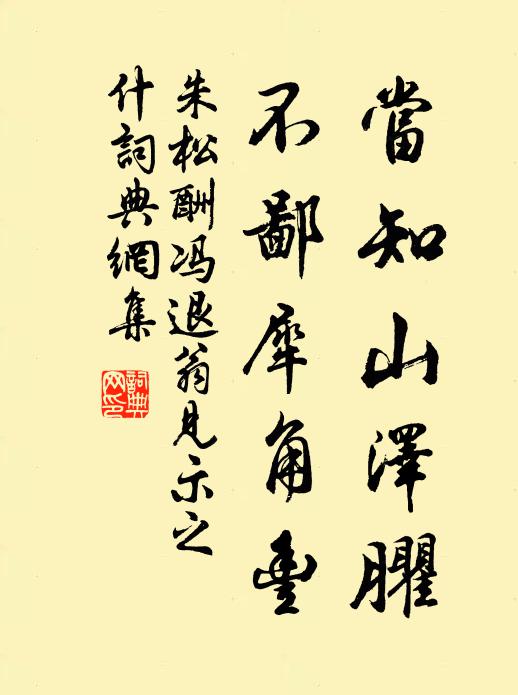 當知山澤臞
不鄙犀角豐
朱松酬冯退翁見示之
什詞典網集
詞典
网印